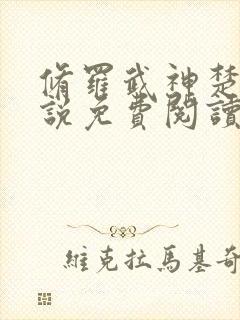 脩羅武神楚
說免費閱讀
維克拉馬基奇